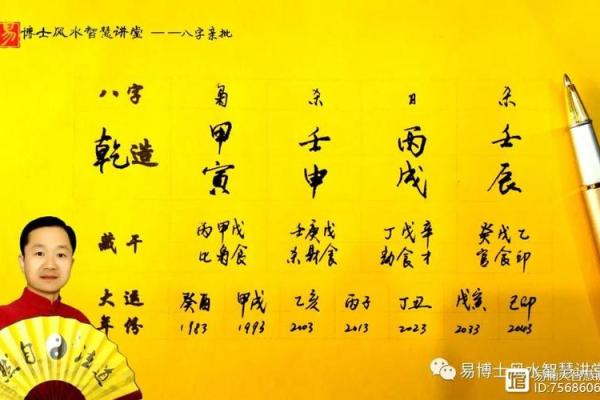 易 博士风水智慧讲堂 ——八字亲批
八字 枭 杀 日 杀
乾造 甲 壬 丙 壬
寅 申 戌 辰
藏干 丙甲戊 壬庚戊 丁戊辛 癸戊乙
比枭食 杀财食 劫食才 官食印
大运 癸酉 甲戌 乙亥 丙子 丁丑 戊寅 己卯
年份 1983 1993 2003 2013 2023 2033 2043
自 道
易博士风水智慧讲堂
ID:7568606